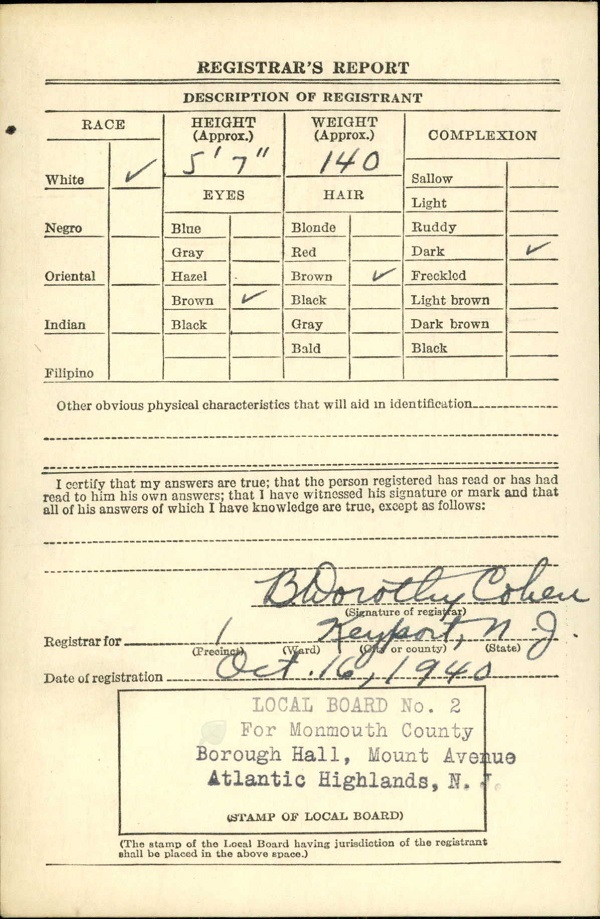 REGISTRAR'S REPORT
DESCRIPTION OF REGISTRANT
RACE
HEIGHT
(Approx.)
WEIGHT
(Approx.)
COMPLEXION
5' 7"
140
White ✓
Negro
Oriental
Indian
Filipino
EYES
Blue
Gray
Hazel
Brown ✓
Black
HAIR
Blonde
Red
Brown ✓
Black
Gray
Bald
Sallow
Light
Ruddy
Dark ✓
Freckled
Light brown
Dark brown
Black
Other obvious physical characteristics that will aid in identification
I certify that my answers are true; that the person registered has read or has had
read to him his own answers; that I have witnessed his signature or mark and that
all of his answers of which I have knowledge are true, except as follows:
B Dorothy Cohen
(Signature of registrar)
Registrar for 1 Keyport, N J.
(Precinct) (Ward) (City or county) (State)
Date of registration Oct. 16, 1940
LOCAL BOARD No. 2
For Monmouth County
Borough Hall, Mount Avenue
Atlantic Highlands, N. J.
(STAMP OF LOCAL BOARD)
(The stamp of the Local Board having jurisdiction of the registrant
shall be placed in the above space.)